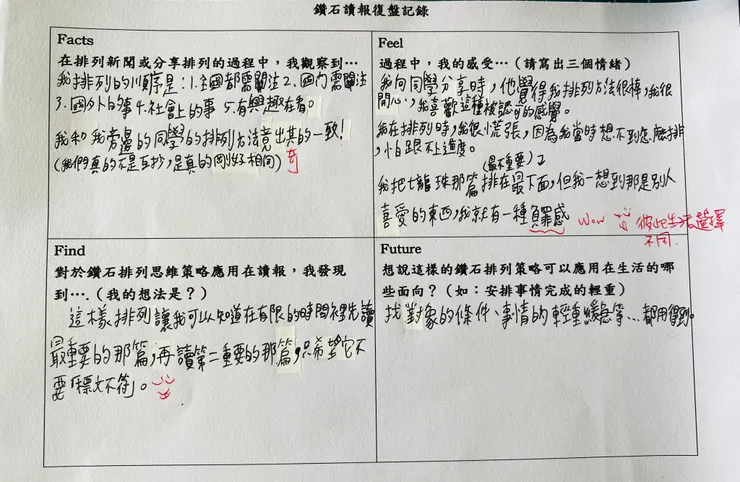 鑽石讀報復盤記錄
Facts
在排列新聞或分享排列的過程中，我觀察到…
我排列的順序是：1.全國都需關注2.國內需關注
3.國外的事4.社會上的事 5.有興趣在看。
我和我旁邊的同學的排列方法竟出其的一致！
(我們真的不是互抄，是真的剛好相同)
奇
Feel
過程中，我的感受…（請寫出三個情緒）
我向同學分享時，他覺得我排列方法很棒，我很
開心，我喜歡這種被認可的感覺。
我在排列時，我很慌張，因為我當時想不到怎麼排
，怕跟不上進度。
(最不重要)
我把七龍珠那篇排在最下面，但我一想到那是別人
喜愛的東西，我就有一種負罪感
Wow 彼此生活選擇
不同.
Find
對於鑽石排列思維策略應用在讀報，我發現
到….（我的想法是？）
這樣排列讓我可以知道在有限的時間裡先讀
最重要的那篇，再讀第二重要的那篇，只希望它不
要「標大不符」。
Future
想說這樣的鑽石排列策略可以應用在生活的哪
些面向？（如：安排事情完成的輕重）
找對象的條件、事情的輕重緩急等…都用得到。